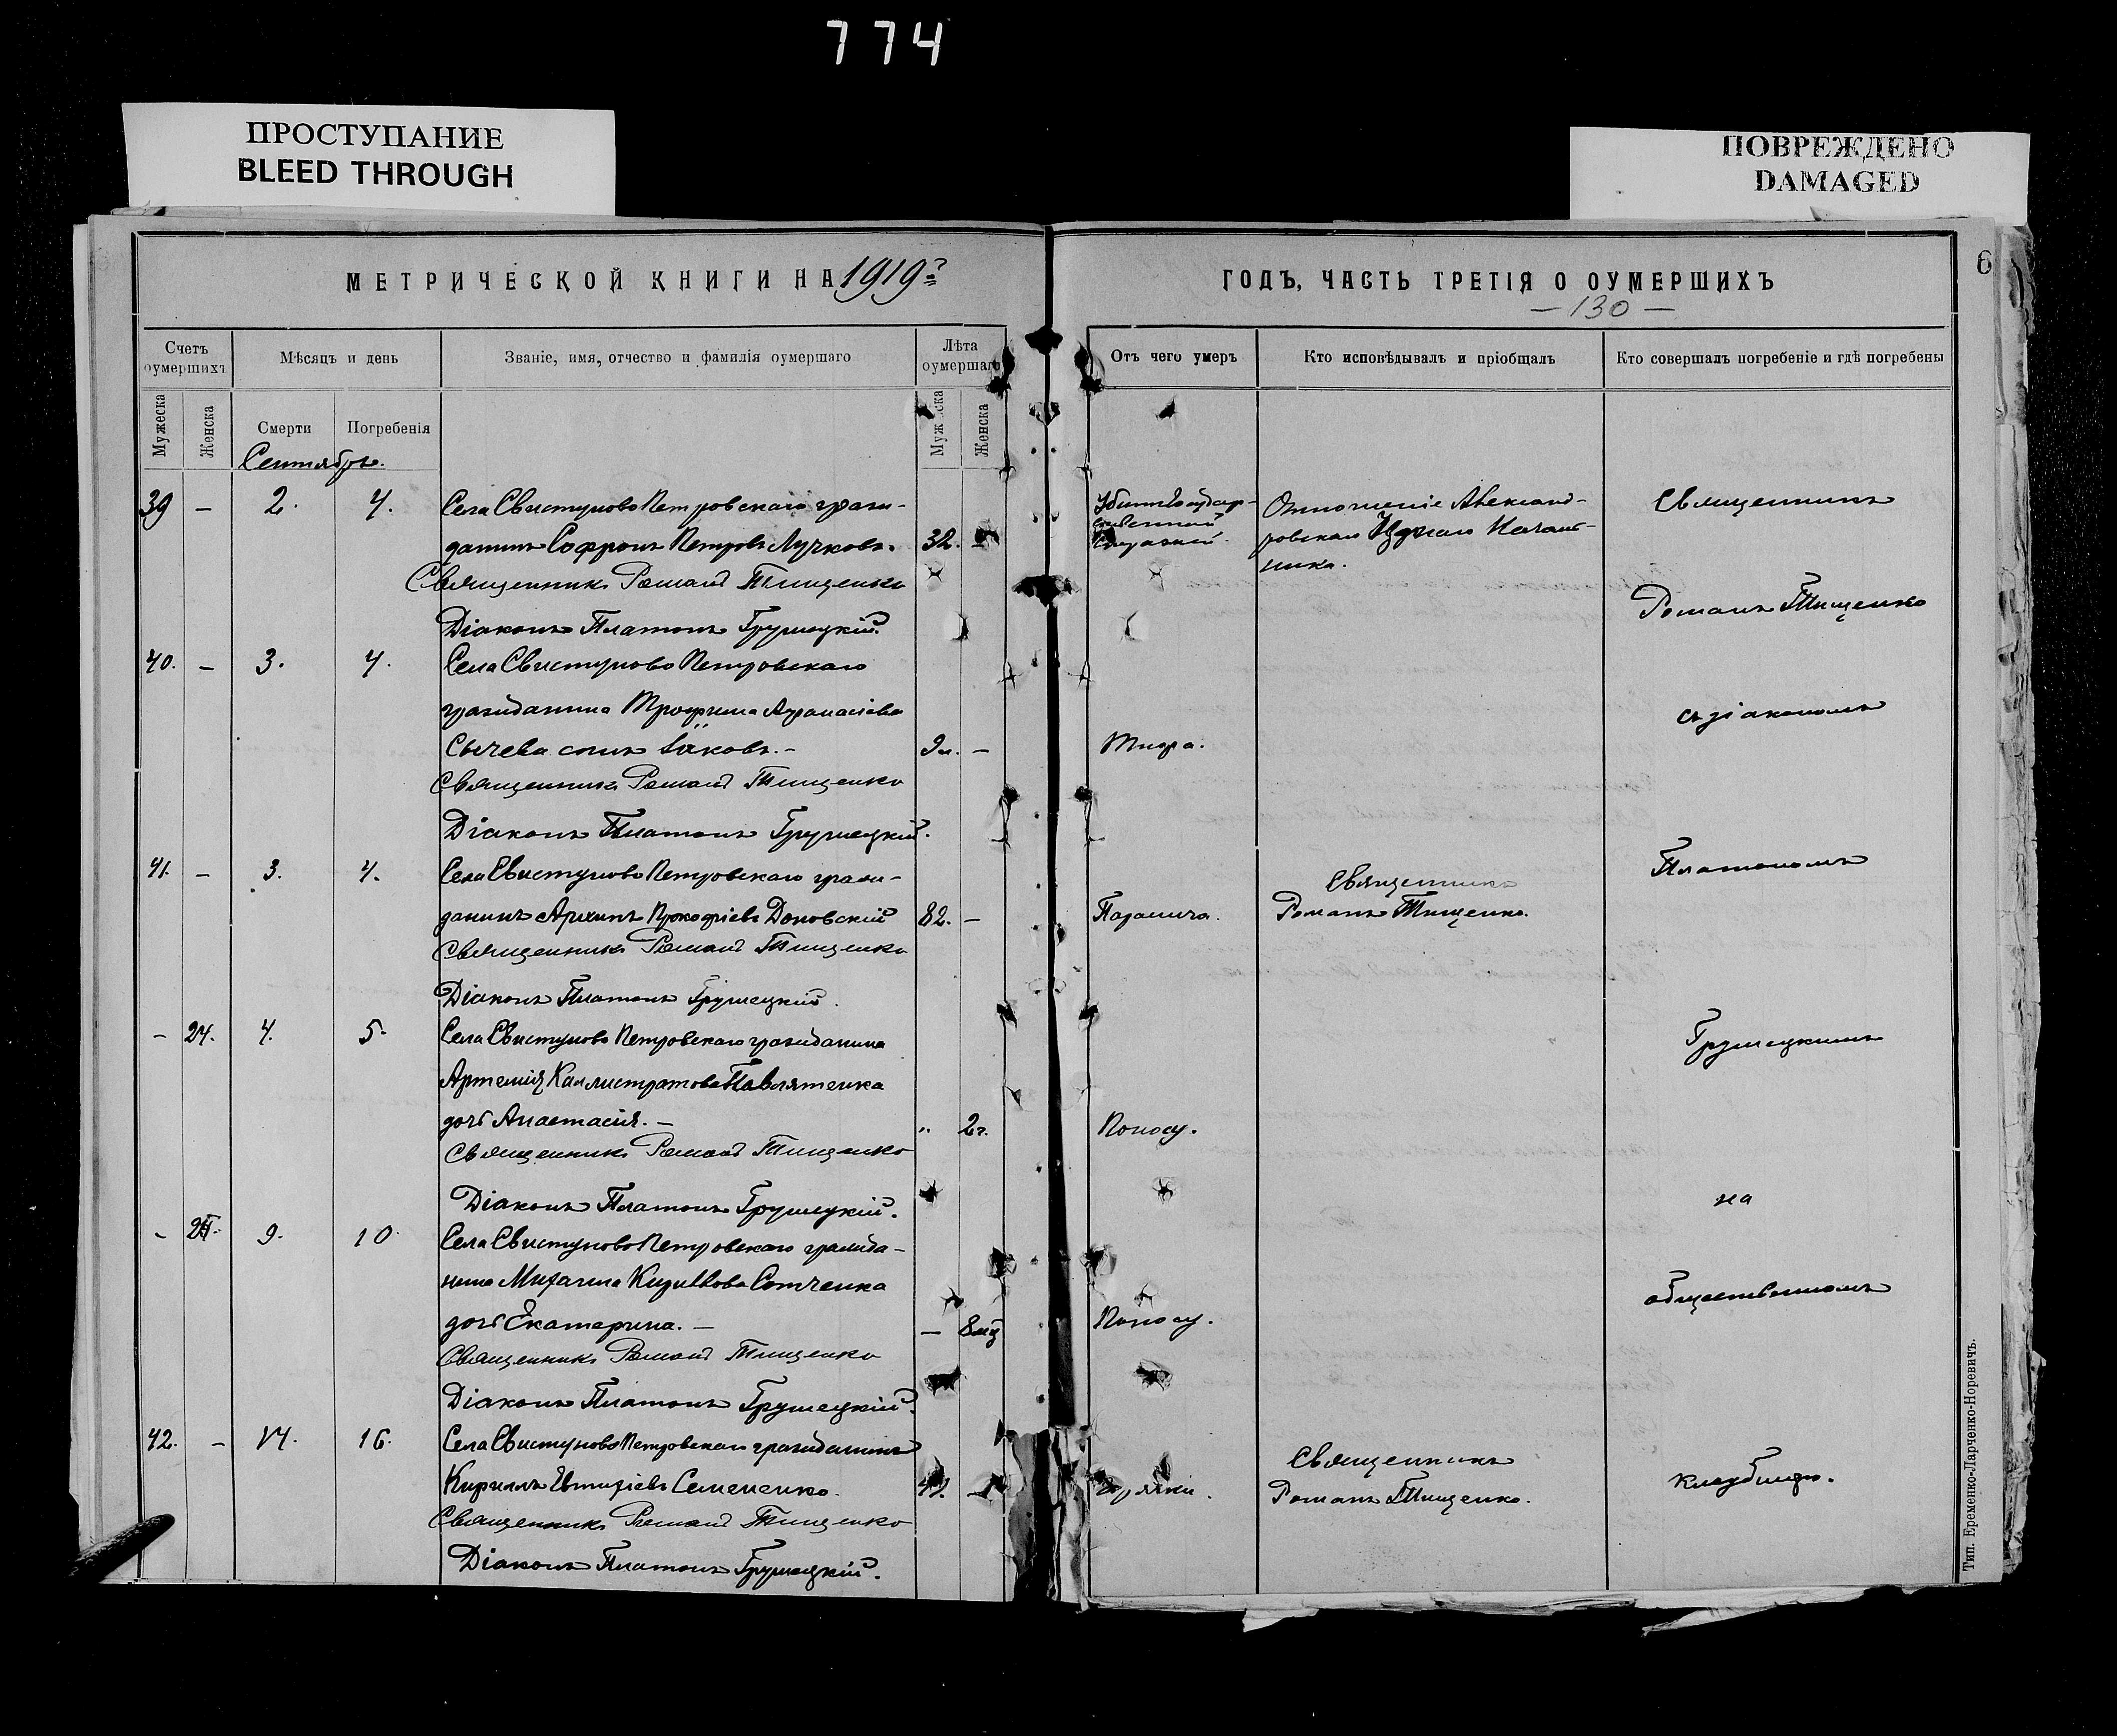 774
ПРОСТУПАНИЕ
BLEED THROUGH
ПОВРЕЖДЕНО
DAMAGED
МЕТРИЧЕСКОЙ КНИГИ НА 1919 г.
ГОДЪ, ЧАСТЬ ТРЕТІЯ О ОУМЕРШИХЪ
6
— 130 —
Счетъ оумершихъ
Мѣсяцъ и день
Званіе, имя, отчество и фамилія оумершаго
Лѣта оумершаго
Отъ чего умеръ
Кто исповѣдывалъ и пріобщалъ
Кто совершалъ погребеніе и гдѣ погребены
Мужеска
Женска
Смерти
Погребенія
Муж ска
Женска
Сентябрь.
39 — 2. 4. Села Свистуново Петровскаго граж-
данинъ Софронъ Петровъ Лучковъ. 32. —
Убитъ Государ-
ственной
стражей.
Отношеніе Александ-
ровскаго Уѣзднаго Началь-
ника.
Священникъ Романъ Тищенко
Діаконъ Платонъ Грушецкій.
40. — 3. 4. Села Свистуново Петровскаго
гражданина Трофима Афанасіева
Сычева сынъ Іаковъ. — 9 м. —
Священникъ Романъ Тищенко
Діаконъ Платонъ Грушецкій.
41. — 3. 4. Села Свистуново Петровскаго граж-
данинъ Архипъ Прокофіевъ Доновскій 82. —
Священникъ
Романъ Тищенко.
Священникъ Романъ Тищенко
Діаконъ Платонъ Грушецкій.
— 24. 4. 5. Села Свистуново Петровскаго гражданина
Артемія Каллистратова Павлятенка
дочь Анастасія. — „ 2 г. Поносу.
Священникъ Романъ Тищенко
Діаконъ Платонъ Грушецкій.
— 9. 10. Села Свистуново Петровскаго гражда-
нина Михаила Кириллова Сотченка
дочь Екатерина. — — 8 мц Поносу.
Священникъ Романъ Тищенко
Діаконъ Платонъ Грушецкій.
42. — 14. 16. Села Свистуново Петровскаго гражданинъ
Кириллъ Евтихіевъ Семененко.
Священникъ
Романъ Тищенко.
Священникъ Романъ Тищенко
Діаконъ Платонъ Грушецкій.
Священникъ
Романъ Тищенко
съ діакономъ
Платономъ
Грушецкимъ
на
общественномъ
кладбищѣ.
Тип. Еременко-Ларченко-Норевичъ.